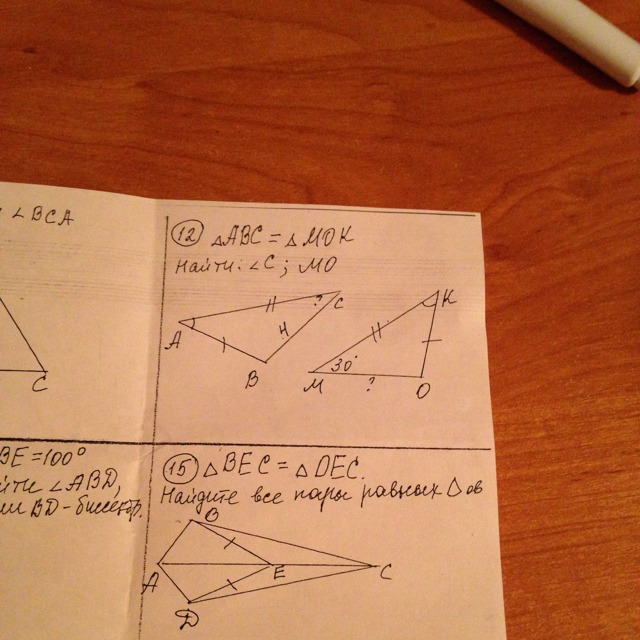 ∠BCA
C
BE=100°
йти ∠ABD,
BD-биссектр.
12 △ABC=△MOK
Найти: ∠C; MO
A
B
C
?
4
K
M
30°
?
O
15 △BEC=△DEC.
Найдите все пары равных △ов
B
A
E
C
D